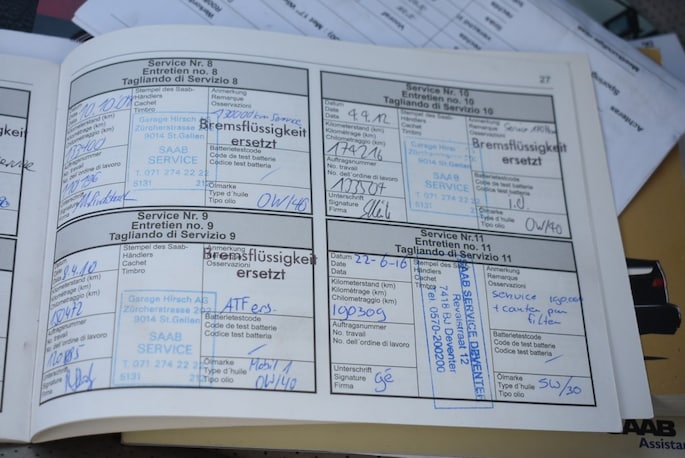 27
Service Nr. 8
Entretien no. 8
Tagliando di Servizio 8
Datum
Date
Data
Kilometerstand (km)
Kilométrage (km)
Chilometraggio (km)
Auftragsnummer
No. travail
No. dell'ordine di lavoro
Unterschrift
Signature
Firma
Stempel des Saab-
Händlers
Cachet
Timbro
Garage Hirsch AG
Zürcherstrasse
9014 St.Gallen
SAAB
SERVICE
T. 071 274 22 22
5131
Anmerkung
Remarque
Osservazioni
Service
Bremsflüssigkeit
ersetzt
Batterietestcode
Code de test batterie
Codice test batteria
Ölmarke
Type d'huile
Tipo olio
0W/40
Service Nr. 9
Entretien no. 9
Tagliando di Servizio 9
Kilometerstand (km)
Kilométrage (km)
Chilometraggio (km)
Auftragsnummer
No. travail
No. dell'ordine di lavoro
Unterschrift
Signature
Firma
Stempel des Saab-
Händlers
Cachet
Timbro
Garage Hirsch AG
Zürcherstrasse
9014 St.Gallen
SAAB
SERVICE
T. 071 274 22 22
5131
Anmerkung
Remarque
Osservazioni
Bremsflüssigkeit
ersetzt
ATF ers.
Batterietestcode
Code de test batterie
Codice test batteria
Ölmarke
Type d'huile
Tipo olio
Mobil 1
0W/40
Service Nr. 10
Entretien no. 10
Tagliando di Servizio 10
Datum
Date
Data
4.9.12
Kilometerstand (km)
Kilométrage (km)
Chilometraggio (km)
174216
Auftragsnummer
No. travail
No. dell'ordine di lavoro
173507
Unterschrift
Signature
Firma
Stempel des Saab-
Händlers
Cachet
Timbro
Garage Hirsch
Zürcherstrasse
9014 St.Gallen
SAAB
SERVICE
T. 071 274 22
5131
Anmerkung
Remarque
Osservazioni
Service
Bremsflüssigkeit
ersetzt
Batterietestcode
Code de test batterie
Codice test batteria
i.O.
Ölmarke
Type d'huile
Tipo olio
0W/40
Service Nr.11
Entretien no. 11
Tagliando di Servizio 11
Datum
Date
Data
22-6-16
Kilometerstand (km)
Kilométrage (km)
Chilometraggio (km)
190309
Auftragsnummer
No. travail
No. dell'ordine di lavoro
Unterschrift
Signature
Firma
Gé
Stempel des Saab-
Händlers
Cachet
Timbro
SAAB SERVICE DEVENTER
Revalstraat 12
7418 BJ Deventer
Tel. 0570-200200
Anmerkung
Remarque
Osservazioni
Service 190.000
filter
Batterietestcode
Code de test batterie
Codice test batteria
Ölmarke
Type d'huile
Tipo olio
5W/30
SAAB
Assistan